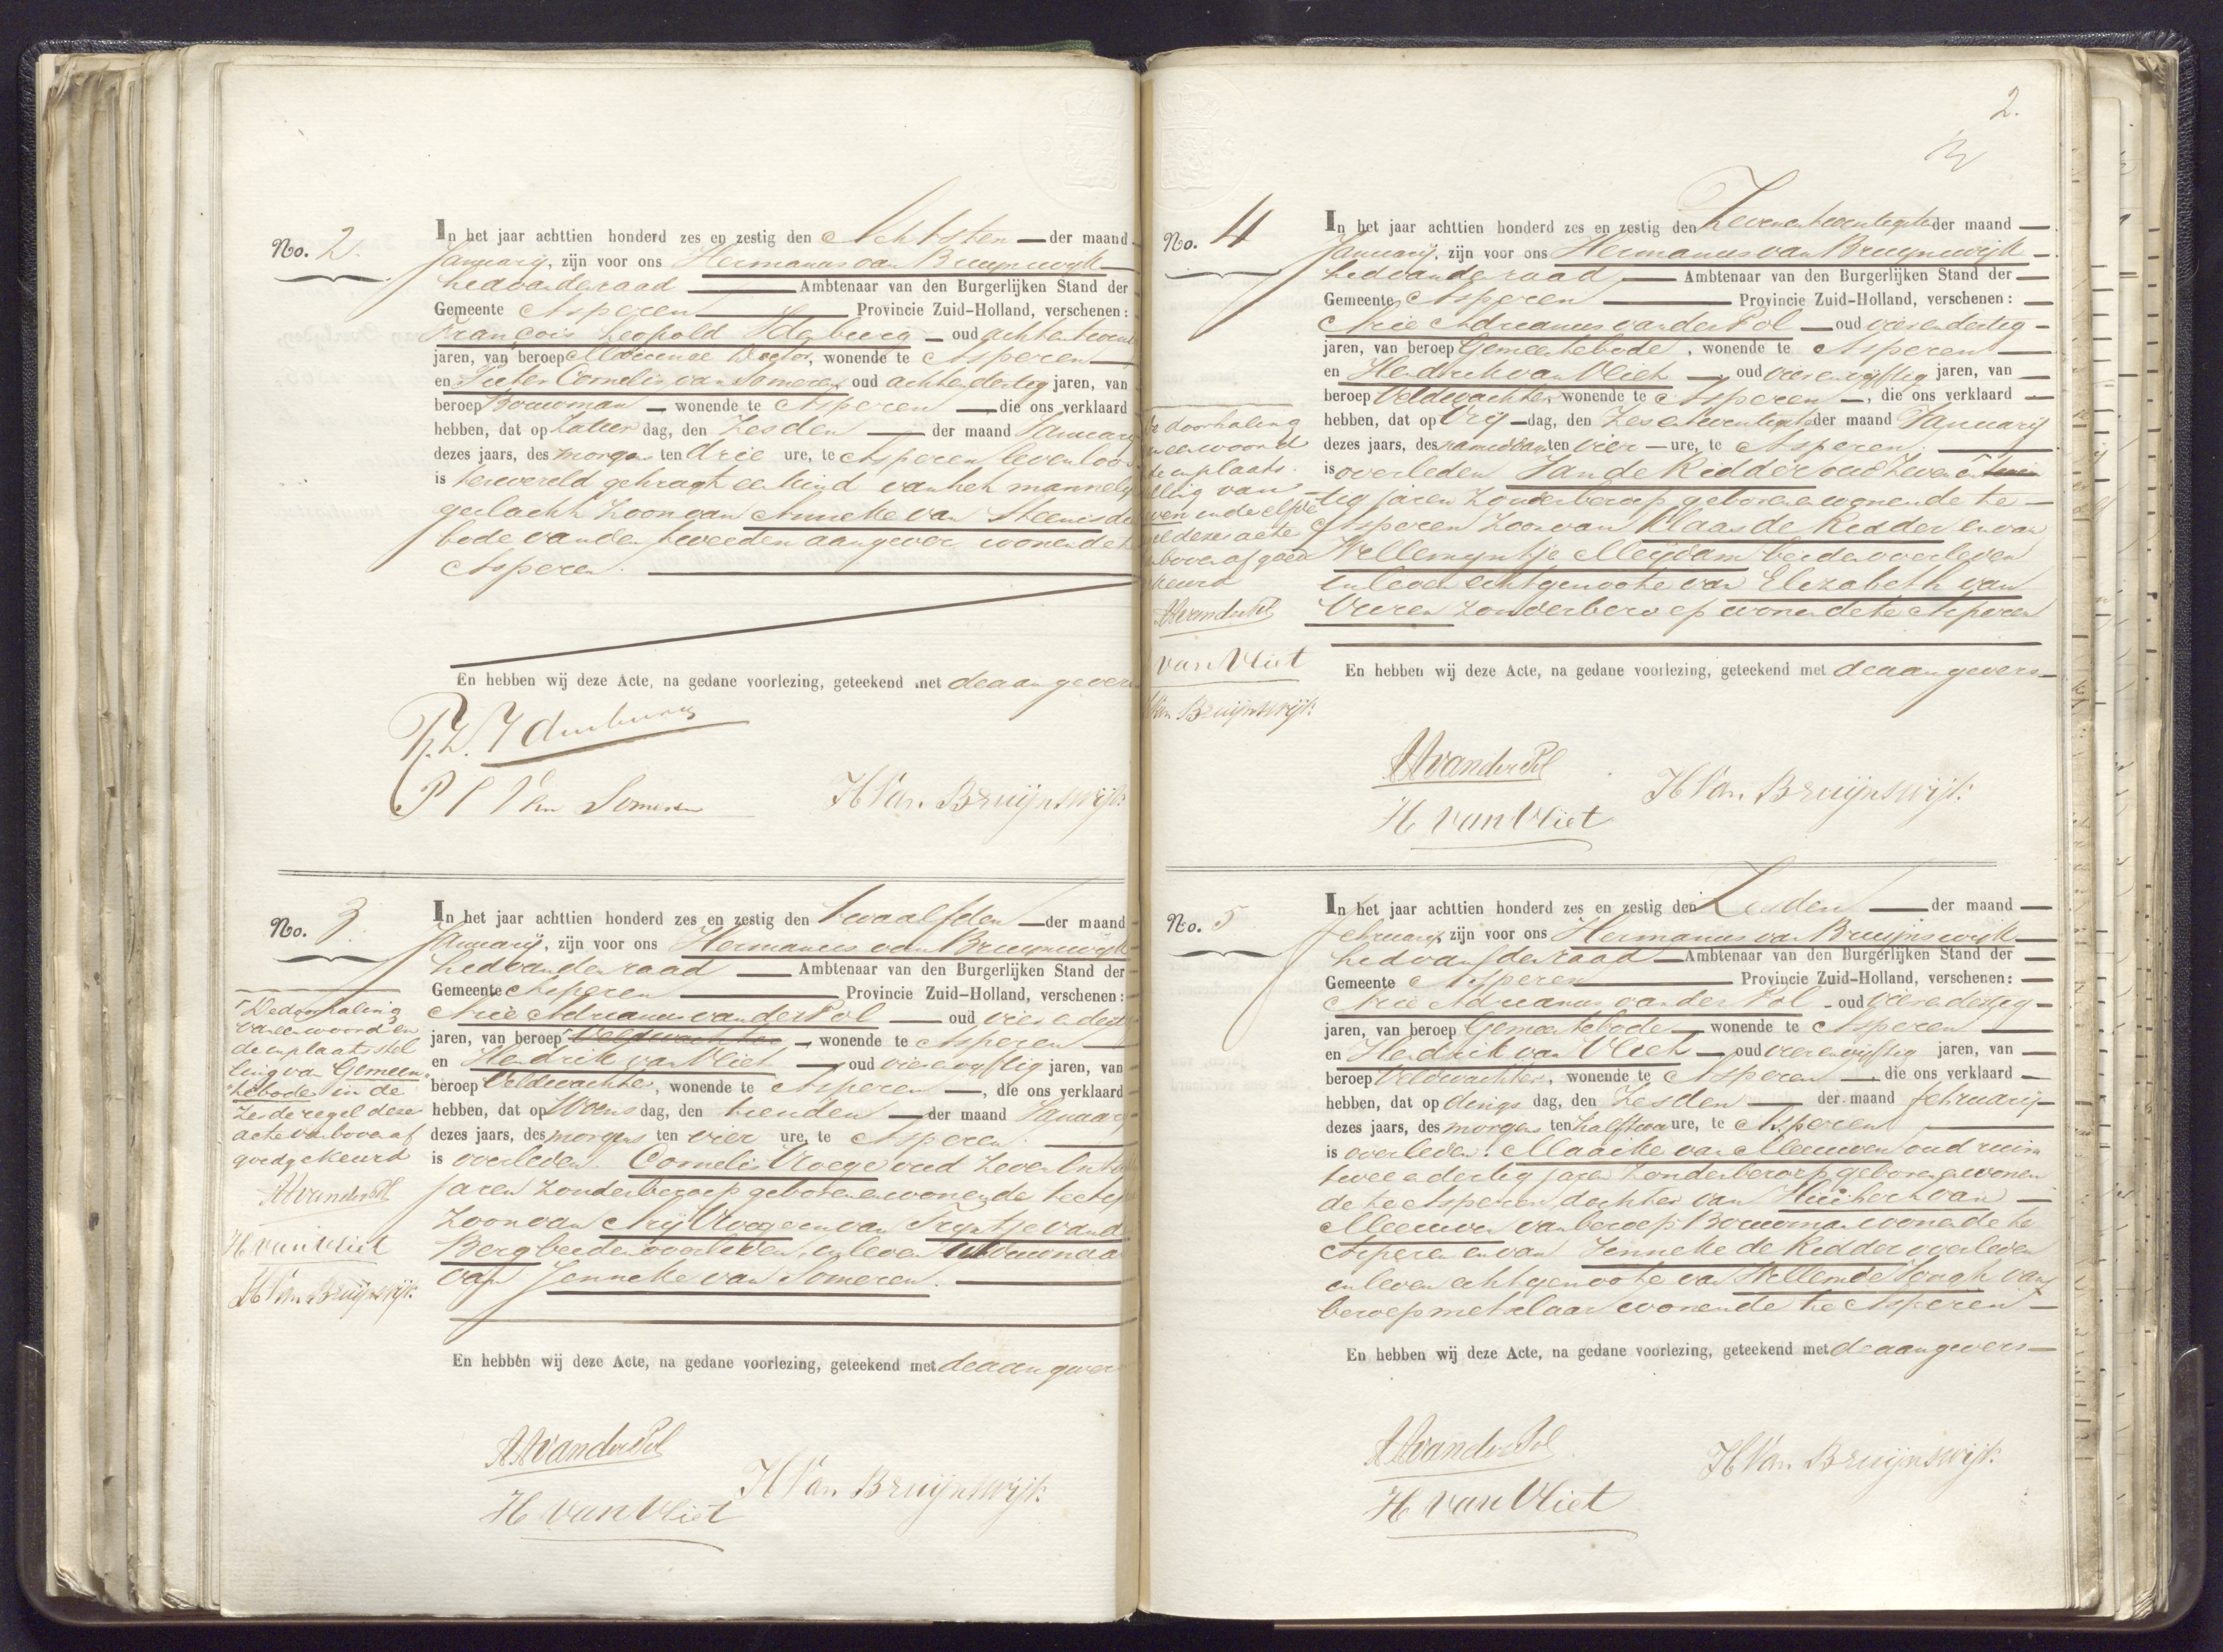 No. 2.
In het jaar achttien honderd zes en zestig den Achtsten der maand
Januarij, zijn voor ons Hermanus van Bruijnswijk
Lid van den raad Ambtenaar van den Burgerlijken Stand der
Gemeente Asperen Provincie Zuid-Holland, verschenen:
François Leopold Idenburg oud achtentwen
jaren, van beroep Medicinae Doctor, wonende te Asperen
en Pieter Cornelis van Someren oud achtendertig jaren, van
beroep Bouwman wonende te Asperen die ons verklaard
hebben, dat op Zatur dag, den Zesden der maand Januarij
dezes jaars, des morgens ten drie ure, te Asperen levenloos
is ter wereld gebragt een kind van het mannelijk
geslacht Zoon van Anneke van Steenis
bode van den tweeden aangever wonende te
Asperen.
En hebben wij deze Acte, na gedane voorlezing, geteekend met de aangevers
F. L. Idenburg
P C Van Someren
H Van Bruijnswijk
No. 3
In het jaar achttien honderd zes en zestig den twaalfden der maand
Januarij, zijn voor ons Hermanus van Bruijnswijk
Lid van den raad Ambtenaar van den Burgerlijken Stand der
Gemeente Asperen Provincie Zuid-Holland, verschenen:
Arie Adrianus van der Pol oud vier en dert
jaren, van beroep Veldwachter wonende te Asperen
en Hendrik van Vliet oud vierenvyftig jaren, van
beroep Veldwachter, wonende te Asperen, die ons verklaard
hebben, dat op Woens dag, den tienden der maand Januarij
dezes jaars, des morgens ten vier ure, te Asperen
is overleden. Cornelis Vroege oud Zeven en
jaren Zonder beroep geboren en wonende te
Zoon van Arij Vroege en van Tryntje van d
Berg beiden overleden, in leven Weduwnaar
van Jenneke van Someren.
En hebben wij deze Acte, na gedane voorlezing, geteekend met de aangever
De doorhaling
van een woord en
de in plaats stel
ling van Gemeen
tebode in de
Zesde regel deze
acte van boven af
goedgekeurd
AA van der Pol
H van Vliet
H Van Bruijnswijk
AA van der Pol
H Van Bruijnswijk
H van Vliet
2.
No. 4
In het jaar achttien honderd zes en zestig den Zevenentwentigste der maand
Januarij, zijn voor ons Hermanus van Bruijnswijk
Lid van den raad Ambtenaar van den Burgerlijken Stand der
Gemeente Asperen Provincie Zuid-Holland, verschenen:
Arie Adrianus van der Pol oud vier en dertig
jaren, van beroep Gemeentebode, wonende te Asperen
en Hendrik van Vliet oud vierenvijftig jaren, van
beroep Veldwachter, wonende te Asperen, die ons verklaard
hebben, dat op Vrij dag, den Zesentwentigste der maand Januarij
dezes jaars, des namiddags ten vier ure, te Asperen
is overleden Jan de Ridder oud Zeven en
tig jaren Zonder beroep geboren en wonende te
Asperen Zoon van Klaas de Ridder en van
Willemyntje Meijdam beiden overleden
in leven echtgenoote van Elizabeth van
Vuren Zonder beroep wonende te Asperen
En hebben wij deze Acte, na gedane voorlezing, geteekend met de aangevers
De doorhaling
van een woord
de in plaats
lling van
in de elfde
el deze acte
boven af goed
keurd
AA van der Pol
van Vliet
Van Bruijnswijk
AA van der Pol
H Van Bruijnswijk
H van Vliet
No. 5
In het jaar achttien honderd zes en zestig den Zesden der maand
februarij, zijn voor ons Hermanus van Bruijnswijk
Lid van den raad Ambtenaar van den Burgerlijken Stand der
Gemeente Asperen Provincie Zuid-Holland, verschenen:
Arie Adrianus van der Pol oud vierendertig
jaren, van beroep Gemeentebode wonende te Asperen
en Hendrik van Vliet oud vierenvijftig jaren, van
beroep Veldwachter, wonende te Asperen, die ons verklaard
hebben, dat op dings dag, den Zesden der maand februarij
dezes jaars, des morgens ten half twee ure, te Asperen
is overleden. Maaike van Meeuwen oud ruim
twee en dertig jaren Zonder beroep geboren en wonen
de te Asperen, dochter van Huibert van
Meeuwen van beroep Bouwman wonende te
Asperen en van Jenneke de Ridder overleden
in leven echtgenoote van Willem de Jongh van
beroep metselaar wonende te Asperen
En hebben wij deze Acte, na gedane voorlezing, geteekend met de aangevers
AA van der Pol
H Van Bruijnswijk
H van Vliet